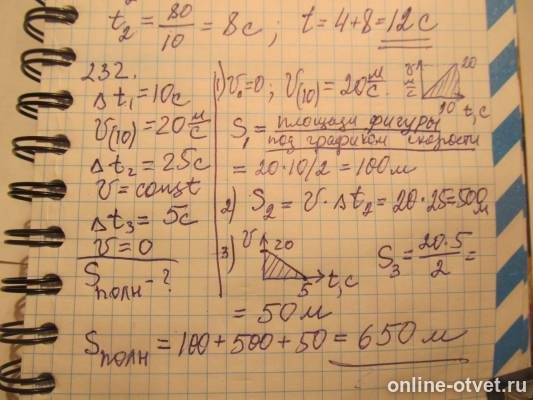 t₂ = 80/10 = 8c; t = 4+8 = 12c
232.
Δt₁ = 10c
V(10) = 20 м/с
Δt₂ = 25c
V = const
Δt₃ = 5c
V = 0
Sполн - ?
1) V₀ = 0; V(10) = 20 м/с.
V м/с 20
10 t, c
S₁ = площади фигуры
под графиком скорости
= 20·10/2 = 100 м
2) S₂ = V·Δt₂ = 20·25 = 500м
3) V 20
5 t, c
S₃ = 20·5/2 =
= 50 м
Sполн = 100 + 500 + 50 = 650 м
online-otvet.ru